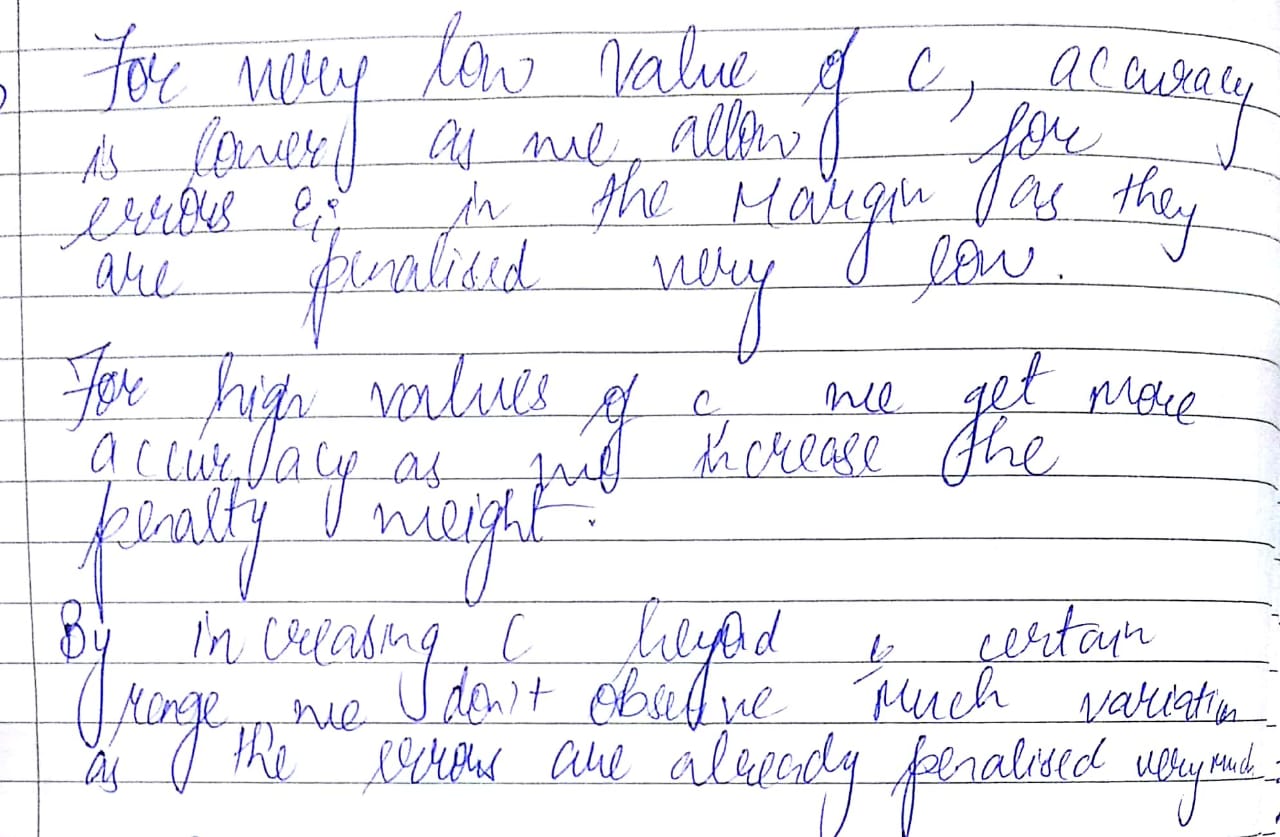 For very low value of C, accuracy
is lower as we allow for
errors ξi in the Margin as they
are penalised very low.
For high values of C, we get more
accuracy as we increase the
penalty weight.
By increasing C beyod a certain
range, we don't observe much variation
as the errors are already penalised very much.